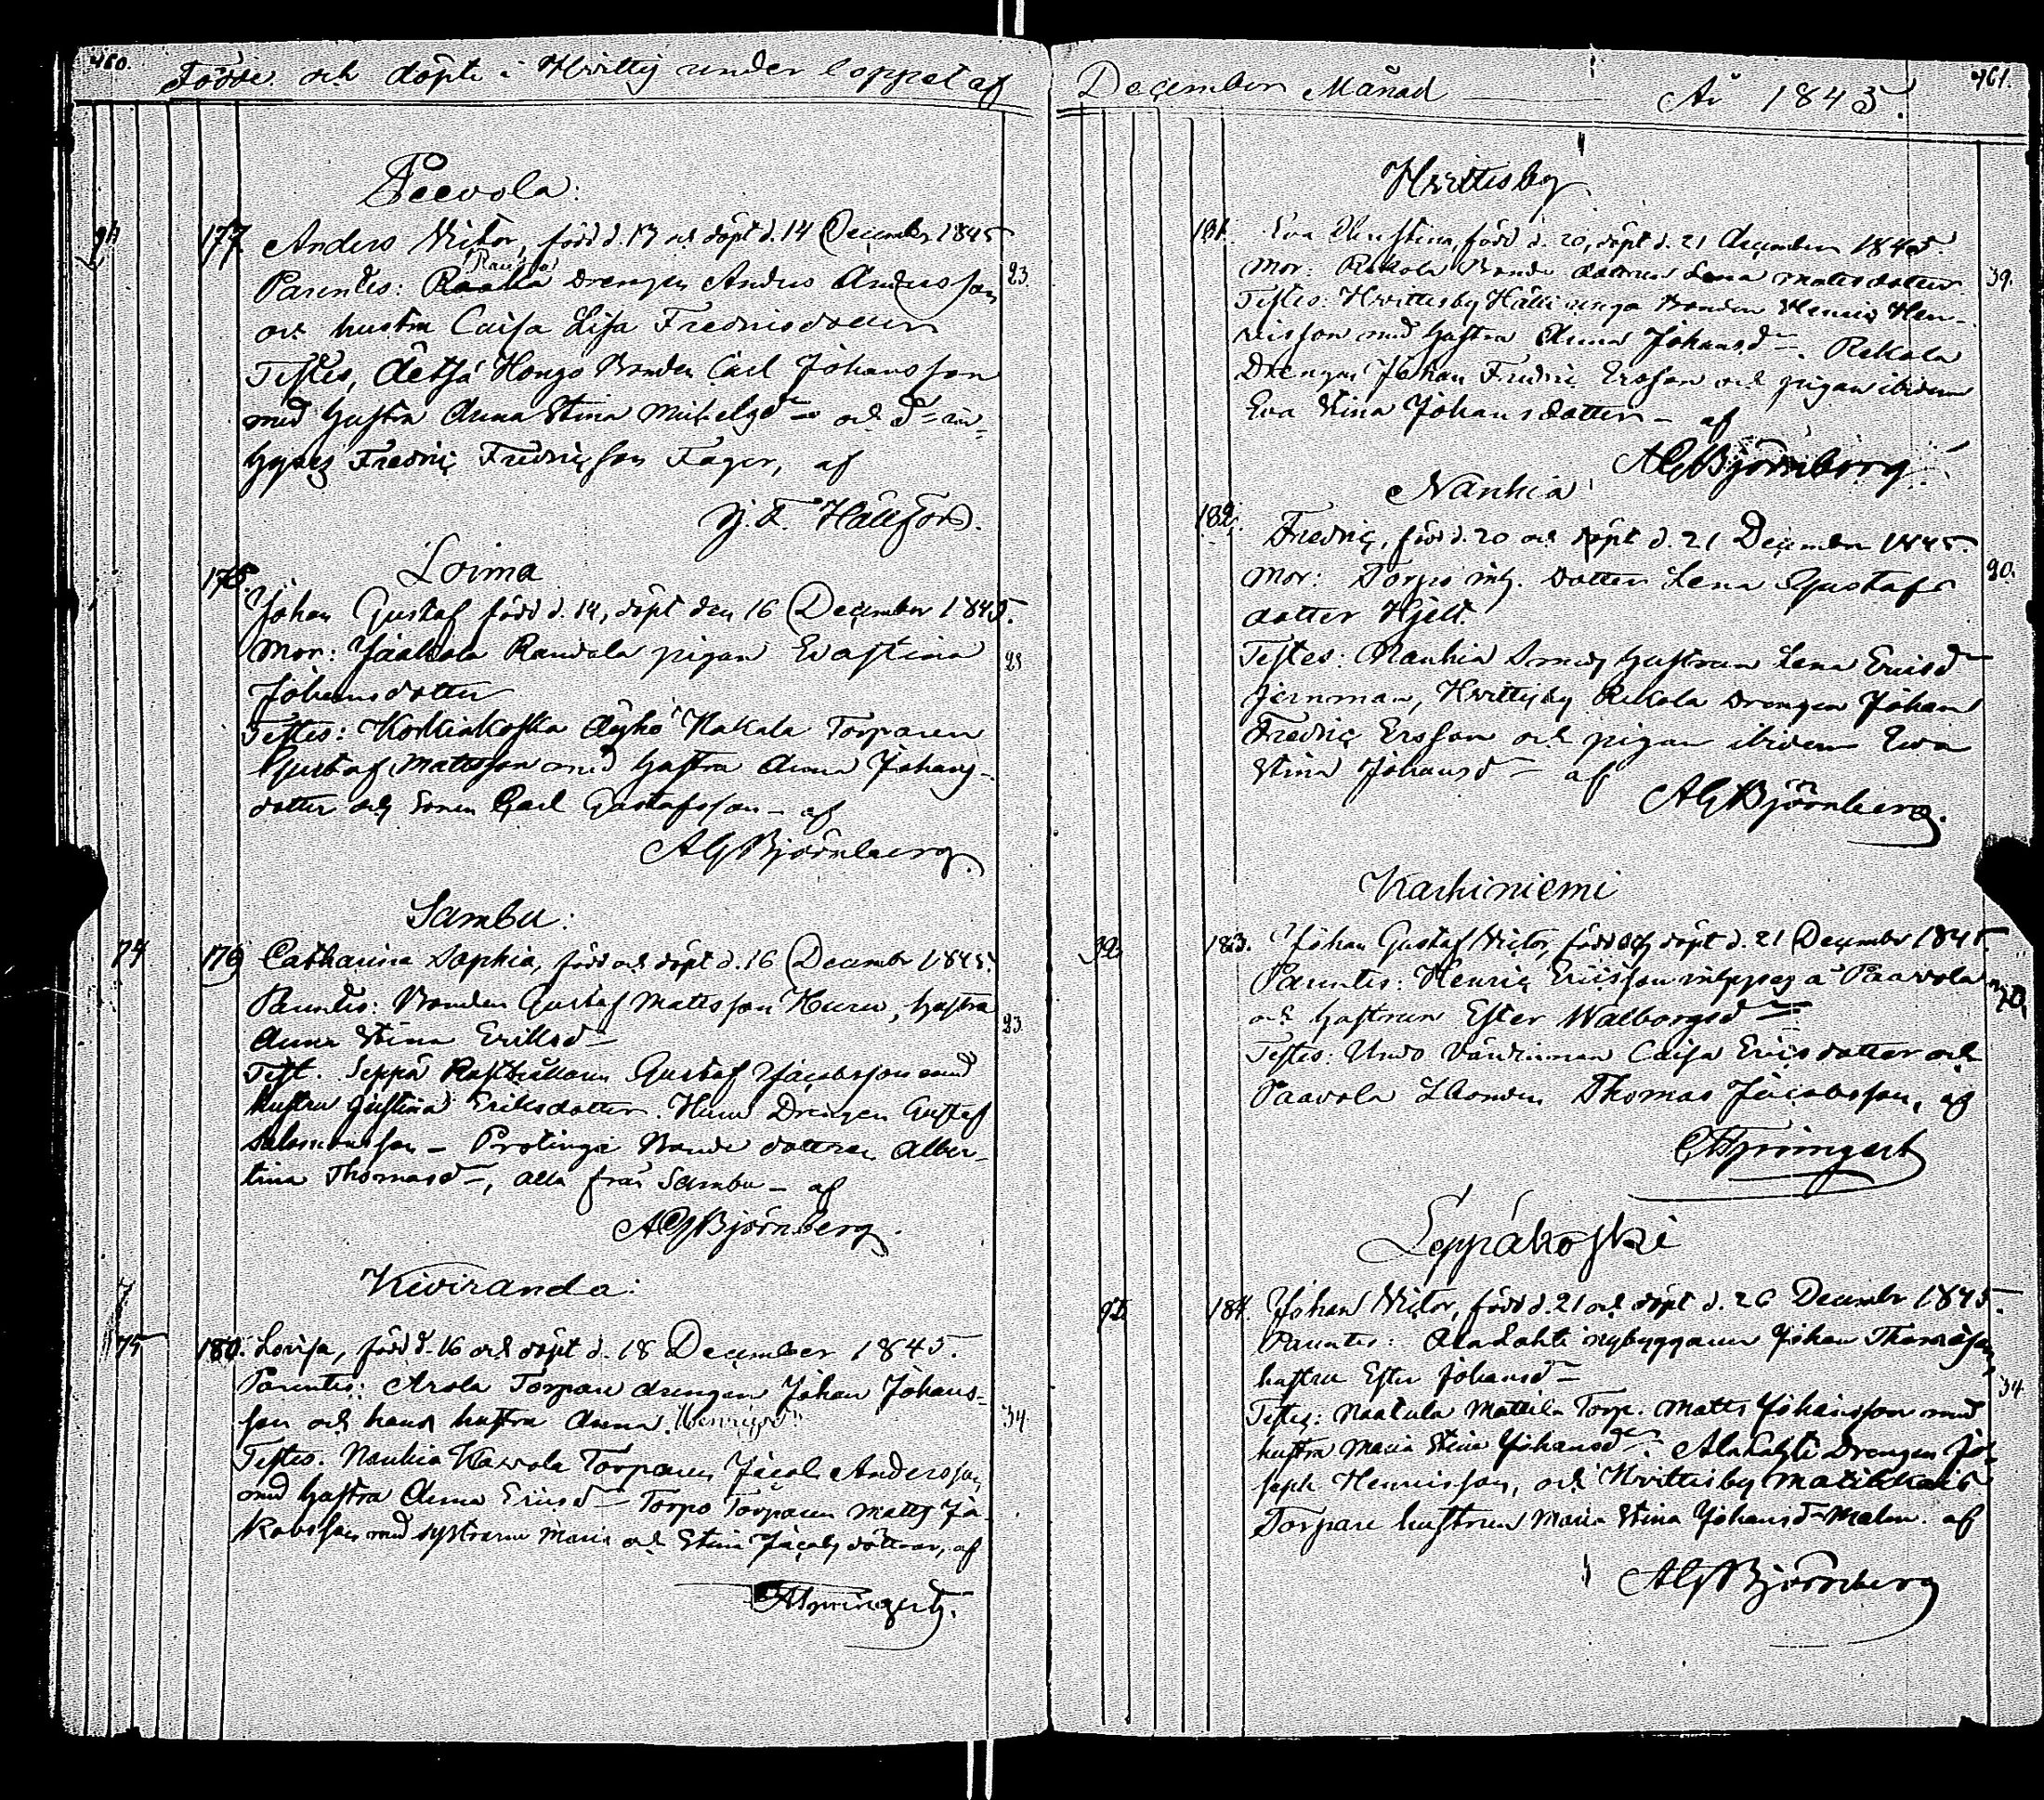 460.
Födde och döpte i Hvittis under loppet af
Peevola:
177 Anders Victor, född d. 13 och döpt d. 14 December 1845
Parentes: Drengen Anders Andersson
23.
och hustru Caisa Lisa Fredricsdotter
Testes, Hongo Bonden Carl Johansson
med hustru Anna Stina Michelsd och
Fredric Fredricsson Fager, af
Hällfors.
Loima
178.
Johan Gustaf född d. 14, döpt den 16 December 1845.
Mor: Jaakola Raudala pigan Eva Stina
23
Johansdotter
Testes: Korkiakoska Äyhö Hakala Torparen
Gustaf Matsson med hustru Anna Johans-
dotter och Sonen Carl Gustafsson - af
AGBjörnberg.
Sambu:
74
179 Catharina Sophia, född och döpt d. 16 December 1845.
Parentes: Bonden Gustaf Mattsson Huru, hustru
23.
Anna Stina Eriksd
Test. Seppä Gustaf Jacobsson med
hustru Justina Eriksdotter. Huru Drengen Gustaf
Salomonsson - Prolingi Bonde dottren Alber-
tina Thomasd, alla från Sambu - af
AGBjörnberg.
Kiviranda:
75
180. Lovisa, född d. 16 och döpt d. 18 December 1845.
Parentes: Arola Torpare drengen Johan Johans-
son och hans hustru Anna Henricsd
34
Testes. Nanhia Kavola Torparen Jacob Andersson
med hustru Anna Ericsd Torpo Torparen Matts Ja-
kobsson med systrarne Maria och Stina Jacobs döttrar, af

December Månad År 1845.
461.
Hvittisby
181. Eva Christina, född d. 20, döpt d. 21 December 1845.
Mor: Rekola Bonde dottren Lena Matsdotter
39.
Testes: Hvittisby Bonden Henric Hen-
ricsson med hustru Anna Johansd. Rekola
Drengen Johan Fredric Ersson och pigan ibidem
Eva Stina Johansdotter - af
AGBjörnberg
Nanhia
182.
Fredric, född d. 20 och döpt d. 21 December 1845.
Mor: Torpo inh. dotter Lena Gustafs
20.
dotter Hjelt.
Testes: Nanhia Smeds hustrun Lena Ericsd
Jernman, Hvittisby Rekola Drengen Johan
Fredric Ersson och pigan ibidem Eva
Stina Johansd - af
AGBjörnberg.
Karhiniemi
183. Johan Gustaf Victor, född och döpt d. 21 December 1845.
Parentes: Henric Ericsson inhyses å Paavola
och hustrun Ester Walborgsd
Testes: Undo Värdinnan Caisa Ericsdotter och
Paavola Bonden Thomas Jacobsson, af
Leppäkoski
184. Johan Victor, född d. 21 och döpt d. 26 December 1845.
Parentes: Alalahti nybyggaren Johan Thomasson
hustru Ester Johansd
34
Testes: Naatula Mattila Torp. Matts Johansson med
hustru Maria Stina Johansd - Alalahti Drengen Jo-
seph Henricsson, och Hvittisby
Torpare hustrun Maria Stina Johansd Malm. af
AGBjörnberg